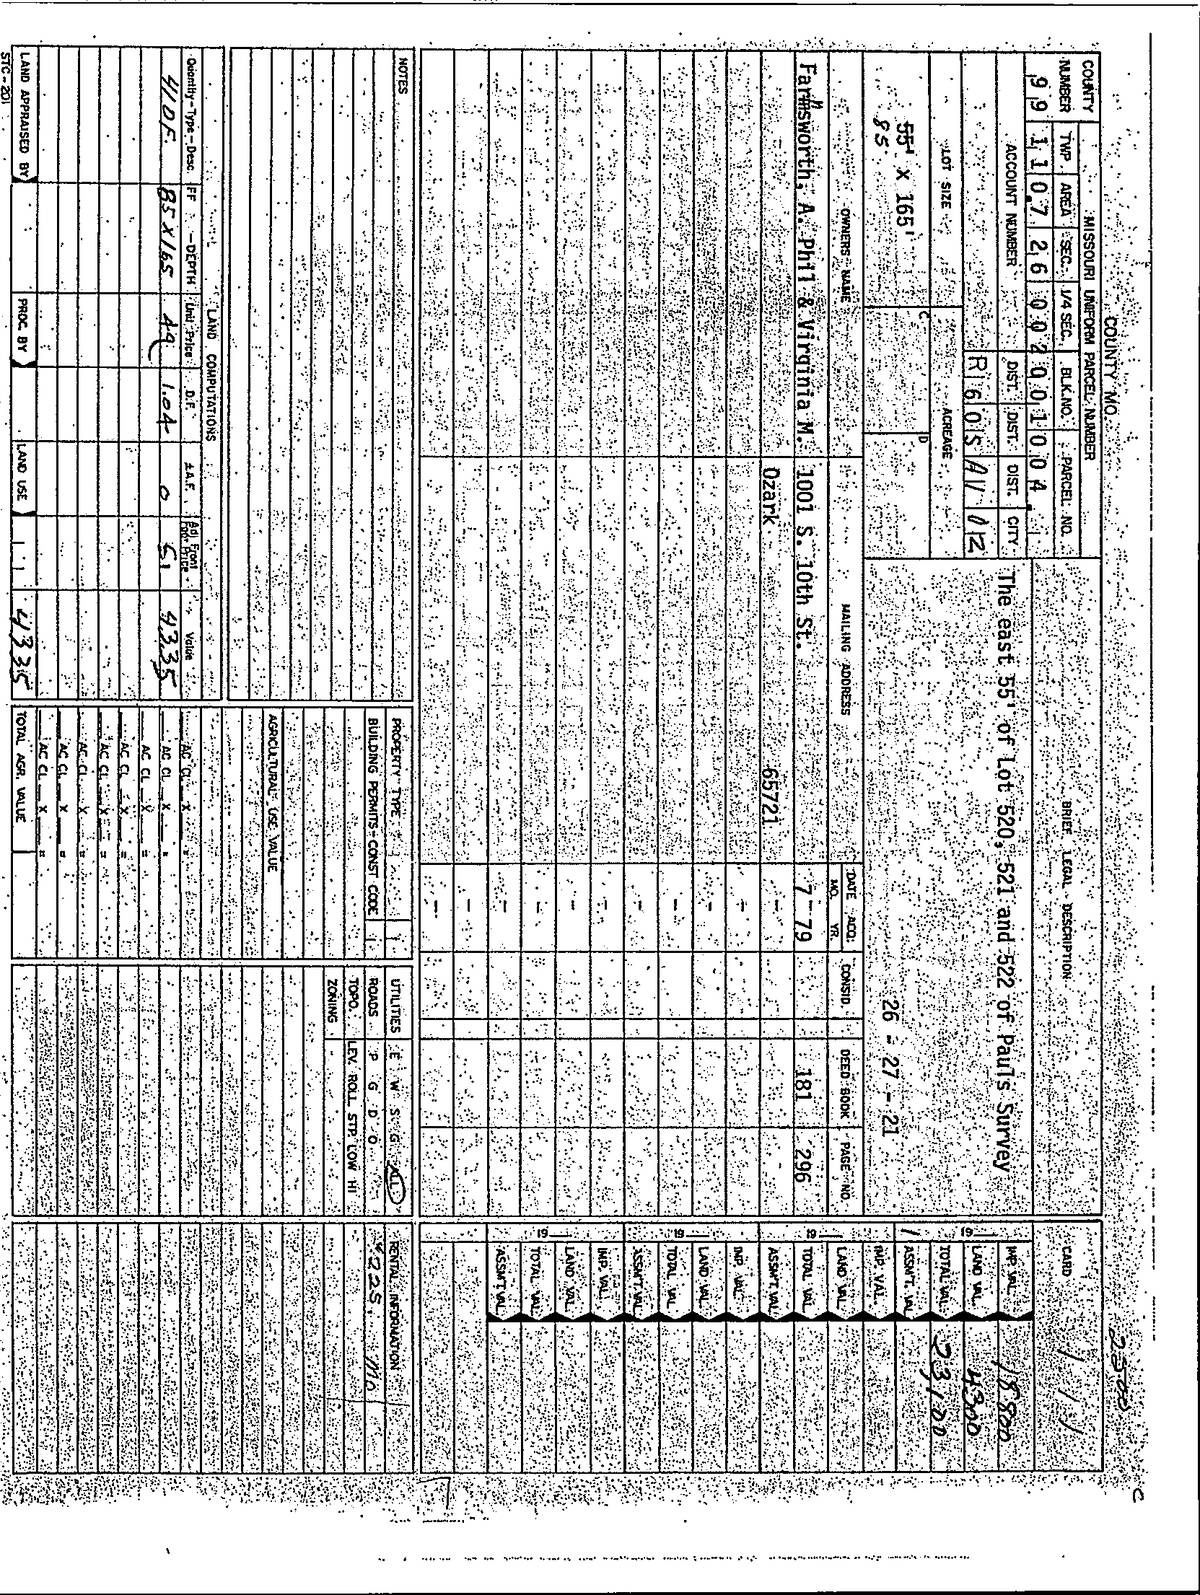 2500
COUNTY MO.
MISSOURI UNIFORM PARCEL NUMBER
COUNTY NUMBER TWP AREA SEC. 1/4 SEC. BLK. NO. PARCEL NO.
99 11 0.7 26 002 001 004.
ACCOUNT NUMBER DIST. DIST. DIST. CITY
R 60S A1 OZ
LOT SIZE ACREAGE
55' x 165'
85
C
D
BRIEF LEGAL DESCRIPTION
The east 55' of Lot 520, 521 and 522 of Pauls Survey
26 - 27 - 21
CARD 1 / 1
19
IMP. VAL. 18800
LAND VAL. 4300
TOTAL VAL. 23,100
ASSM'T. VAL.
19
IMP. VAL.
LAND VAL.
TOTAL VAL.
ASSM'T. VAL.
19
IMP. VAL.
LAND VAL.
TOTAL VAL.
ASSM'T. VAL.
19
IMP. VAL.
LAND VAL.
TOTAL VAL.
ASSM'T. VAL.
OWNERS NAME MAILING ADDRESS DATE ACQ. MO. YR. CONSID. DEED BOOK PAGE NO.
Farnsworth, A. Phil & Virginia M. 1001 S. 10th St. 7-79 181 296
Ozark 65721
NOTES
PROPERTY TYPE
BUILDING PERMITS-CONST CODE
AGRICULTURAL USE VALUE
UTILITIES E W S G ALL
ROADS P G D O
TOPO. LEV. ROLL STP LOW HI
ZONING
RENTAL INFORMATION
$225. mo
LAND COMPUTATIONS
Quantity-Type-Desc. FF - DEPTH Unit Price D.F. ±A.F. Adj. Front Foot Price Value
410F. 85X165 49 1.04 0 51 4335
AC CL X =
AC CL X =
AC CL X =
AC CL X =
AC CL X =
AC CL X =
AC CL X =
AC CL X =
LAND APPRAISED BY PROC. BY LAND USE 4335
TOTAL AGR. VALUE
STC-201